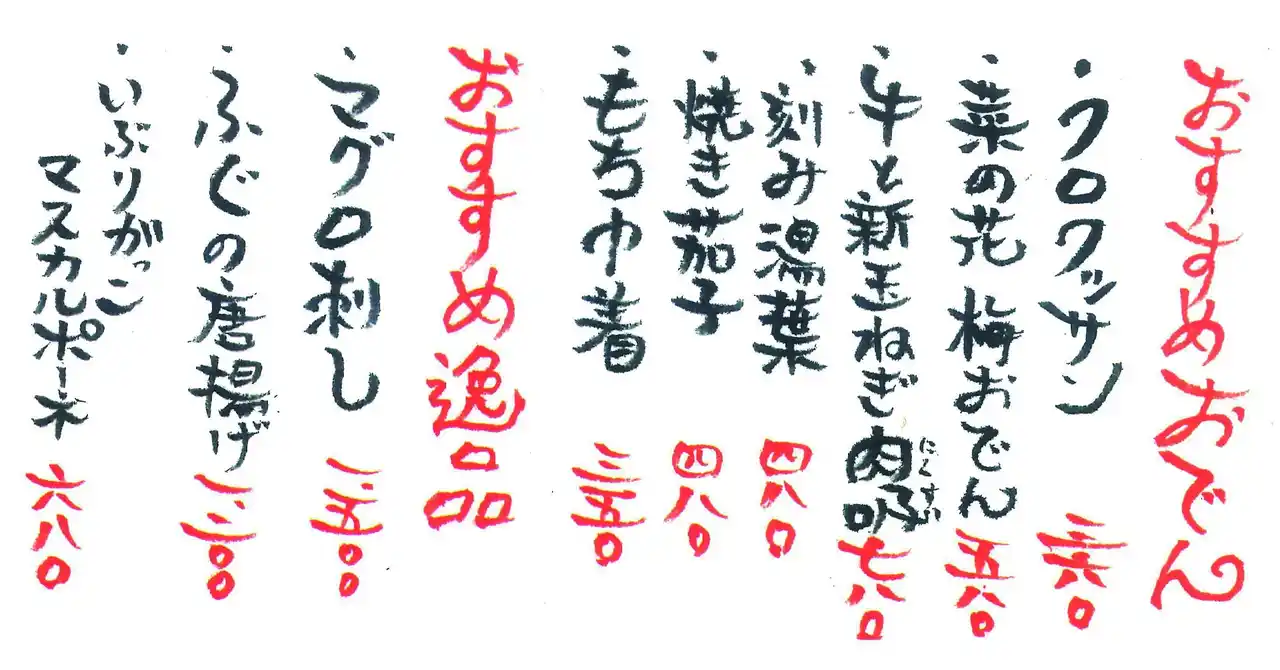 おすすめおでん
・クロワッサン 三八〇
・菜の花 梅おでん 五八〇
・牛と新玉ねぎ肉吸 にくすい 七八〇
・刻み湯葉 四八〇
・焼き茄子 四八〇
・もち巾着 三五〇
おすすめ逸品
・マグロ刺し 一、五〇〇
・ふぐの唐揚げ 一、二〇〇
・いぶりがっこ
マスカルポーネ 六八〇